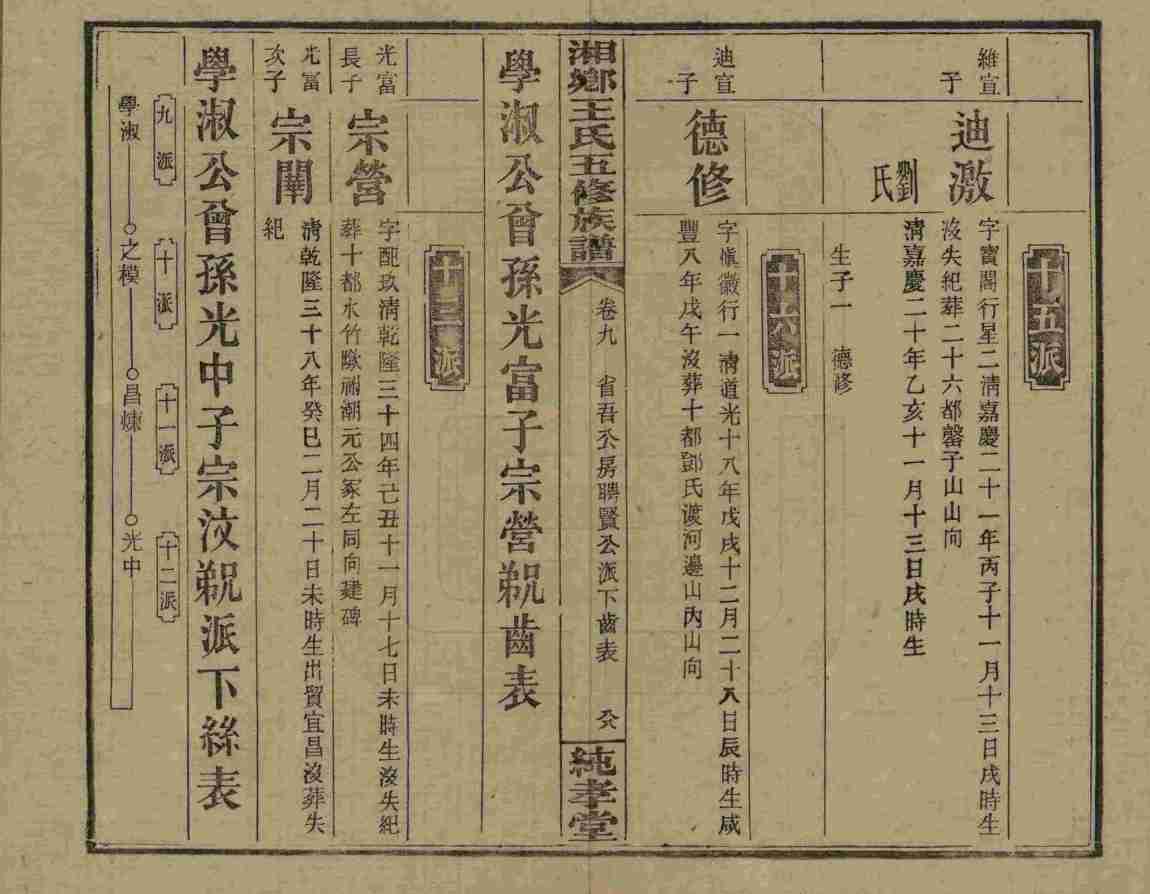 十五派
維宣
子
迪激
字寶閣行星二清嘉慶二十一年丙子十一月十三日戌時生
沒失紀葬二十六都罄子山山向
劉氏
清嘉慶二十年乙亥十一月十三日戌時生
生子一 德修
十六派
迪宣
子
德修
字愼徽行一清道光十八年戊戌十二月二十八日辰時生咸
豐八年戊午沒葬十都鄧氏渡河邊山內山向
湘鄉王氏五修族譜 卷九 省吾公房聘賢公派下齒表 純孝堂
學淑公曾孫光富子宗營派齒表
十三派
光富
長子
宗營
字配玖清乾隆三十四年己丑十一月十七日未時生沒失紀
葬十都水竹潮元公冢左同向建碑
光富
次子
宗闈
清乾隆三十八年癸巳二月二十日未時生出貿宜昌沒葬失
紀
學淑公曾孫光中子宗汶派下絲表
九派
十派
十一派
十二派
學淑
之模
昌煉
光中